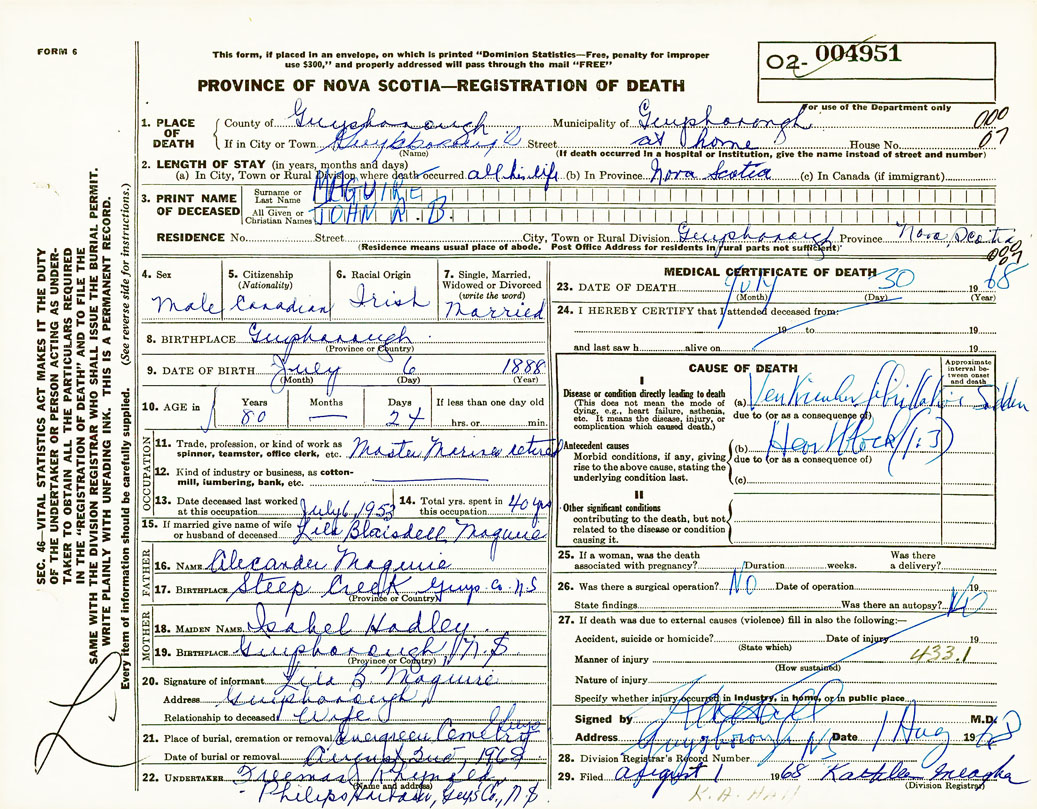 FORM 6
This form, if placed in an envelope, on which is printed "Dominion Statistics—Free, penalty for improper
use $300," and properly addressed will pass through the mail "FREE"
PROVINCE OF NOVA SCOTIA—REGISTRATION OF DEATH
02- 004951
For use of the Department only
1. PLACE OF DEATH County of Guysborough Municipality of Guysborough 000
If in City or Town Guysborough Street at home House No. 07
(Name) (If death occurred in a hospital or institution, give the name instead of street and number)
2. LENGTH OF STAY (in years, months and days)
(a) In City, Town or Rural Division where death occurred all his life (b) In Province Nova Scotia (c) In Canada (if immigrant)
3. PRINT NAME OF DECEASED
Surname or Last Name MAGUIRE
All Given or Christian Names JOHN R. B.
RESIDENCE No. Street City, Town or Rural Division Guysborough Province Nova Scotia
(Residence means usual place of abode. Post Office Address for residents in rural parts not sufficient)
000
07
SEC. 46—VITAL STATISTICS ACT MAKES IT THE DUTY
OF THE UNDERTAKER OR PERSON ACTING AS UNDER-
TAKER TO OBTAIN ALL THE PARTICULARS REQUIRED
IN THE "REGISTRATION OF DEATH" AND TO FILE THE
SAME WITH THE DIVISION REGISTRAR WHO SHALL ISSUE THE BURIAL PERMIT.
WRITE PLAINLY WITH UNFADING INK. THIS IS A PERMANENT RECORD.
Every item of information should be carefully supplied. (See reverse side for instructions.)
4. Sex Male
5. Citizenship (Nationality) Canadian
6. Racial Origin Irish
7. Single, Married, Widowed or Divorced (write the word) Married
8. BIRTHPLACE Guysborough
(Province or Country)
9. DATE OF BIRTH July 6 1888
(Month) (Day) (Year)
10. AGE in Years 80 Months — Days 24 If less than one day old hrs. or min.
OCCUPATION
11. Trade, profession, or kind of work as
spinner, teamster, office clerk, etc. Master Mariner retired
12. Kind of industry or business, as cotton-
mill, lumbering, bank, etc.
13. Date deceased last worked at this occupation July 6, 1953
14. Total yrs. spent in this occupation 40 yrs
15. If married give name of wife or husband of deceased Lila Blaisdell Maguire
FATHER
16. NAME Alexander Maguire
17. BIRTHPLACE Steep Creek Guys. Co. N.S
(Province or Country)
MOTHER
18. MAIDEN NAME Isabel Hadley
19. BIRTHPLACE Guysborough, N.S
(Province or Country)
20. Signature of informant Lila B Maguire
Address Guysborough
Relationship to deceased Wife
21. Place of burial, cremation or removal Evergreen Cemetery Guys
Date of burial or removal August 2nd, 1968
22. UNDERTAKER Freeman
(Name and address)
Philips Harbour, Guys Co., N.S
MEDICAL CERTIFICATE OF DEATH
23. DATE OF DEATH July 30 1968
(Month) (Day) (Year)
24. I HEREBY CERTIFY that I attended deceased from:
19 to 19
and last saw h alive on 19
CAUSE OF DEATH
Approximate interval between onset and death
I
Disease or condition directly leading to death
(This does not mean the mode of
dying, e.g., heart failure, asthenia,
etc. It means the disease, injury, or
complication which caused death.)
(a) Ventricular fibrillation Sudden
due to (or as a consequence of)
Antecedent causes
Morbid conditions, if any, giving
rise to the above cause, stating the
underlying condition last.
(b) Heart Block (1:3)
due to (or as a consequence of)
(c)
II
Other significant conditions
contributing to the death, but not
related to the disease or condition
causing it.
25. If a woman, was the death associated with pregnancy? Duration weeks. Was there a delivery?
26. Was there a surgical operation? NO Date of operation 19
State findings Was there an autopsy? NO
27. If death was due to external causes (violence) fill in also the following:—
Accident, suicide or homicide? Date of injury 19
(State which)
433.1
Manner of injury
(How sustained)
Nature of injury
Specify whether injury occurred in industry, in home, or in public place
Signed by M.D.
Address Guysborough NS Date 1 Aug 1968
28. Division Registrar's Record Number
29. Filed August 1 1968 Kathleen Meagher
(Division Registrar)
K. A. Hall